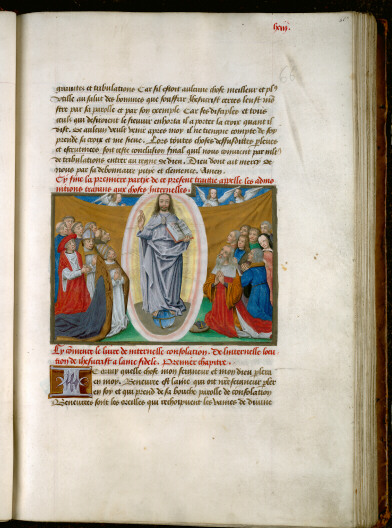 gravites et tribulations Car sil estoit aulcune chose meilleur et pl9
utille au salut des hommes que souffrir Jhesucrist certes leust mo
stre par sa parolle et par son exemple Car ses disciples et tous
ceulx qui desiroient le sievuir enhorta il a porter la croix quant il
dist. Se aulcun veult venir apres moy il ne tiengne compte de soy
prende sa croix et me sieve. Lors toutes choses
et soit ceste conclusion final quil nous convient par mlt
de tribulations entrer au regne de dieu. Dieu dont ait mercy de
nous par sa debonnaire pitie et clemence. Amen.
Cy fine la premiere partye de ce present traittie appelle les admo
nitions trayans aux choses internelles.
Cy comence le livre de internelle consolation. De linternelle locu
tion de jhesucrist a lame fidele. Premier chapitre.
orray quelle chose mon seigneur et mon dieu
en moy. Beneuree est lame qui ot nre seigneur
en soy et qui prend de sa bouche parolle de consolation
Beneurees sont les oreilles qui rechoipvent les vaines de divine